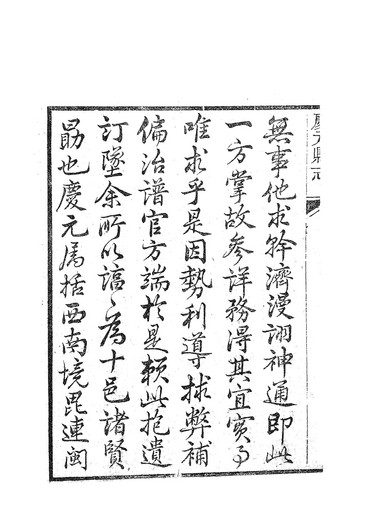 慶元縣志
無事他求幹濟漫詡神通即此
一方掌故參詳務得其宜實事
唯求乎是因勢利導捄弊補
偏治譜官方端於是賴此抱遺
訂墜余所以諄〻為十邑諸賢
勗也慶元屬括西南境毘連閩